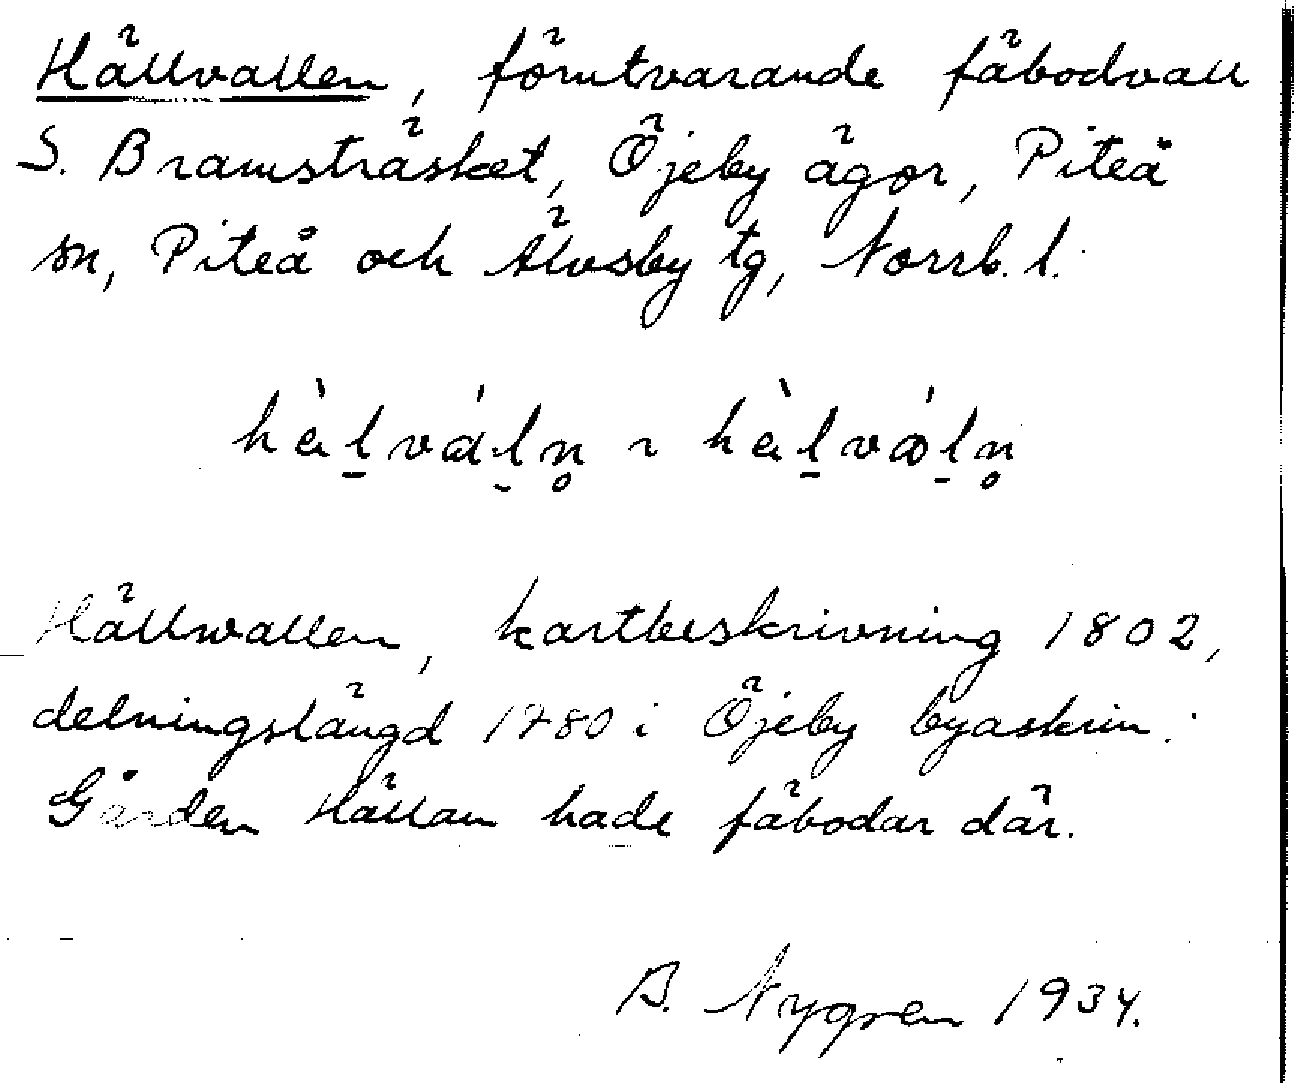 Hällvallen, förutvarande fäbodvall
S. Bramsträsket, Öjeby ägor, Piteå
sn, Piteå och Älvsby tg, Norrb. l.
hàl̠vál̠n̥ ~ hàl̠vǿl̠n̥
Hällwallen, kartbeskrivning 1802,
delningslängd 1780 i Öjeby byaskrin.
Gården Hällan hade fäbodar där.
B. Nygren 1934.